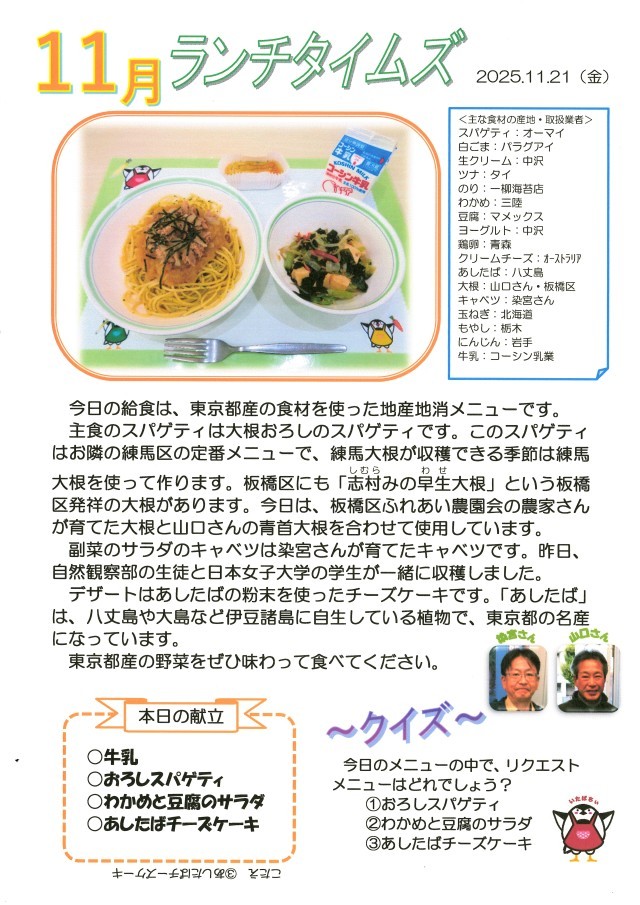 11月 ランチタイムズ 2025.11.21（金）
＜主な食材の産地・取扱業者＞
スパゲティ：オーマイ
白ごま：パラグアイ
生クリーム：中沢
ツナ：タイ
のり：一柳海苔店
わかめ：三陸
豆腐：マメックス
ヨーグルト：中沢
鶏卵：青森
クリームチーズ：ｵｰｽﾄﾗﾘｱ
あしたば：八丈島
大根：山口さん・板橋区
キャベツ：染宮さん
玉ねぎ：北海道
もやし：栃木
にんじん：岩手
牛乳：コーシン乳業
コーシン
牛乳
KOSHIN MILK
コーシン牛乳
今日の給食は、東京都産の食材を使った地産地消メニューです。
主食のスパゲティは大根おろしのスパゲティです。このスパゲティ
はお隣の練馬区の定番メニューで、練馬大根が収穫できる季節は練馬
しむら わせ
大根を使って作ります。板橋区にも「志村みの早生大根」という板橋
区発祥の大根があります。今日は、板橋区ふれあい農園会の農家さん
が育てた大根と山口さんの青首大根を合わせて使用しています。
副菜のサラダのキャベツは染宮さんが育てたキャベツです。昨日、
自然観察部の生徒と日本女子大学の学生が一緒に収穫しました。
デザートはあしたばの粉末を使ったチーズケーキです。「あしたば」
は、八丈島や大島など伊豆諸島に自生している植物で、東京都の名産
になっています。
東京都産の野菜をぜひ味わって食べてください。
染宮さん 山口さん
本日の献立
○牛乳
○おろしスパゲティ
○わかめと豆腐のサラダ
○あしたばチーズケーキ
～クイズ～
今日のメニューの中で、リクエスト
メニューはどれでしょう？
①おろしスパゲティ
②わかめと豆腐のサラダ
③あしたばチーズケーキ
いたばちぃ
こたえ ③あしたばチーズケーキ